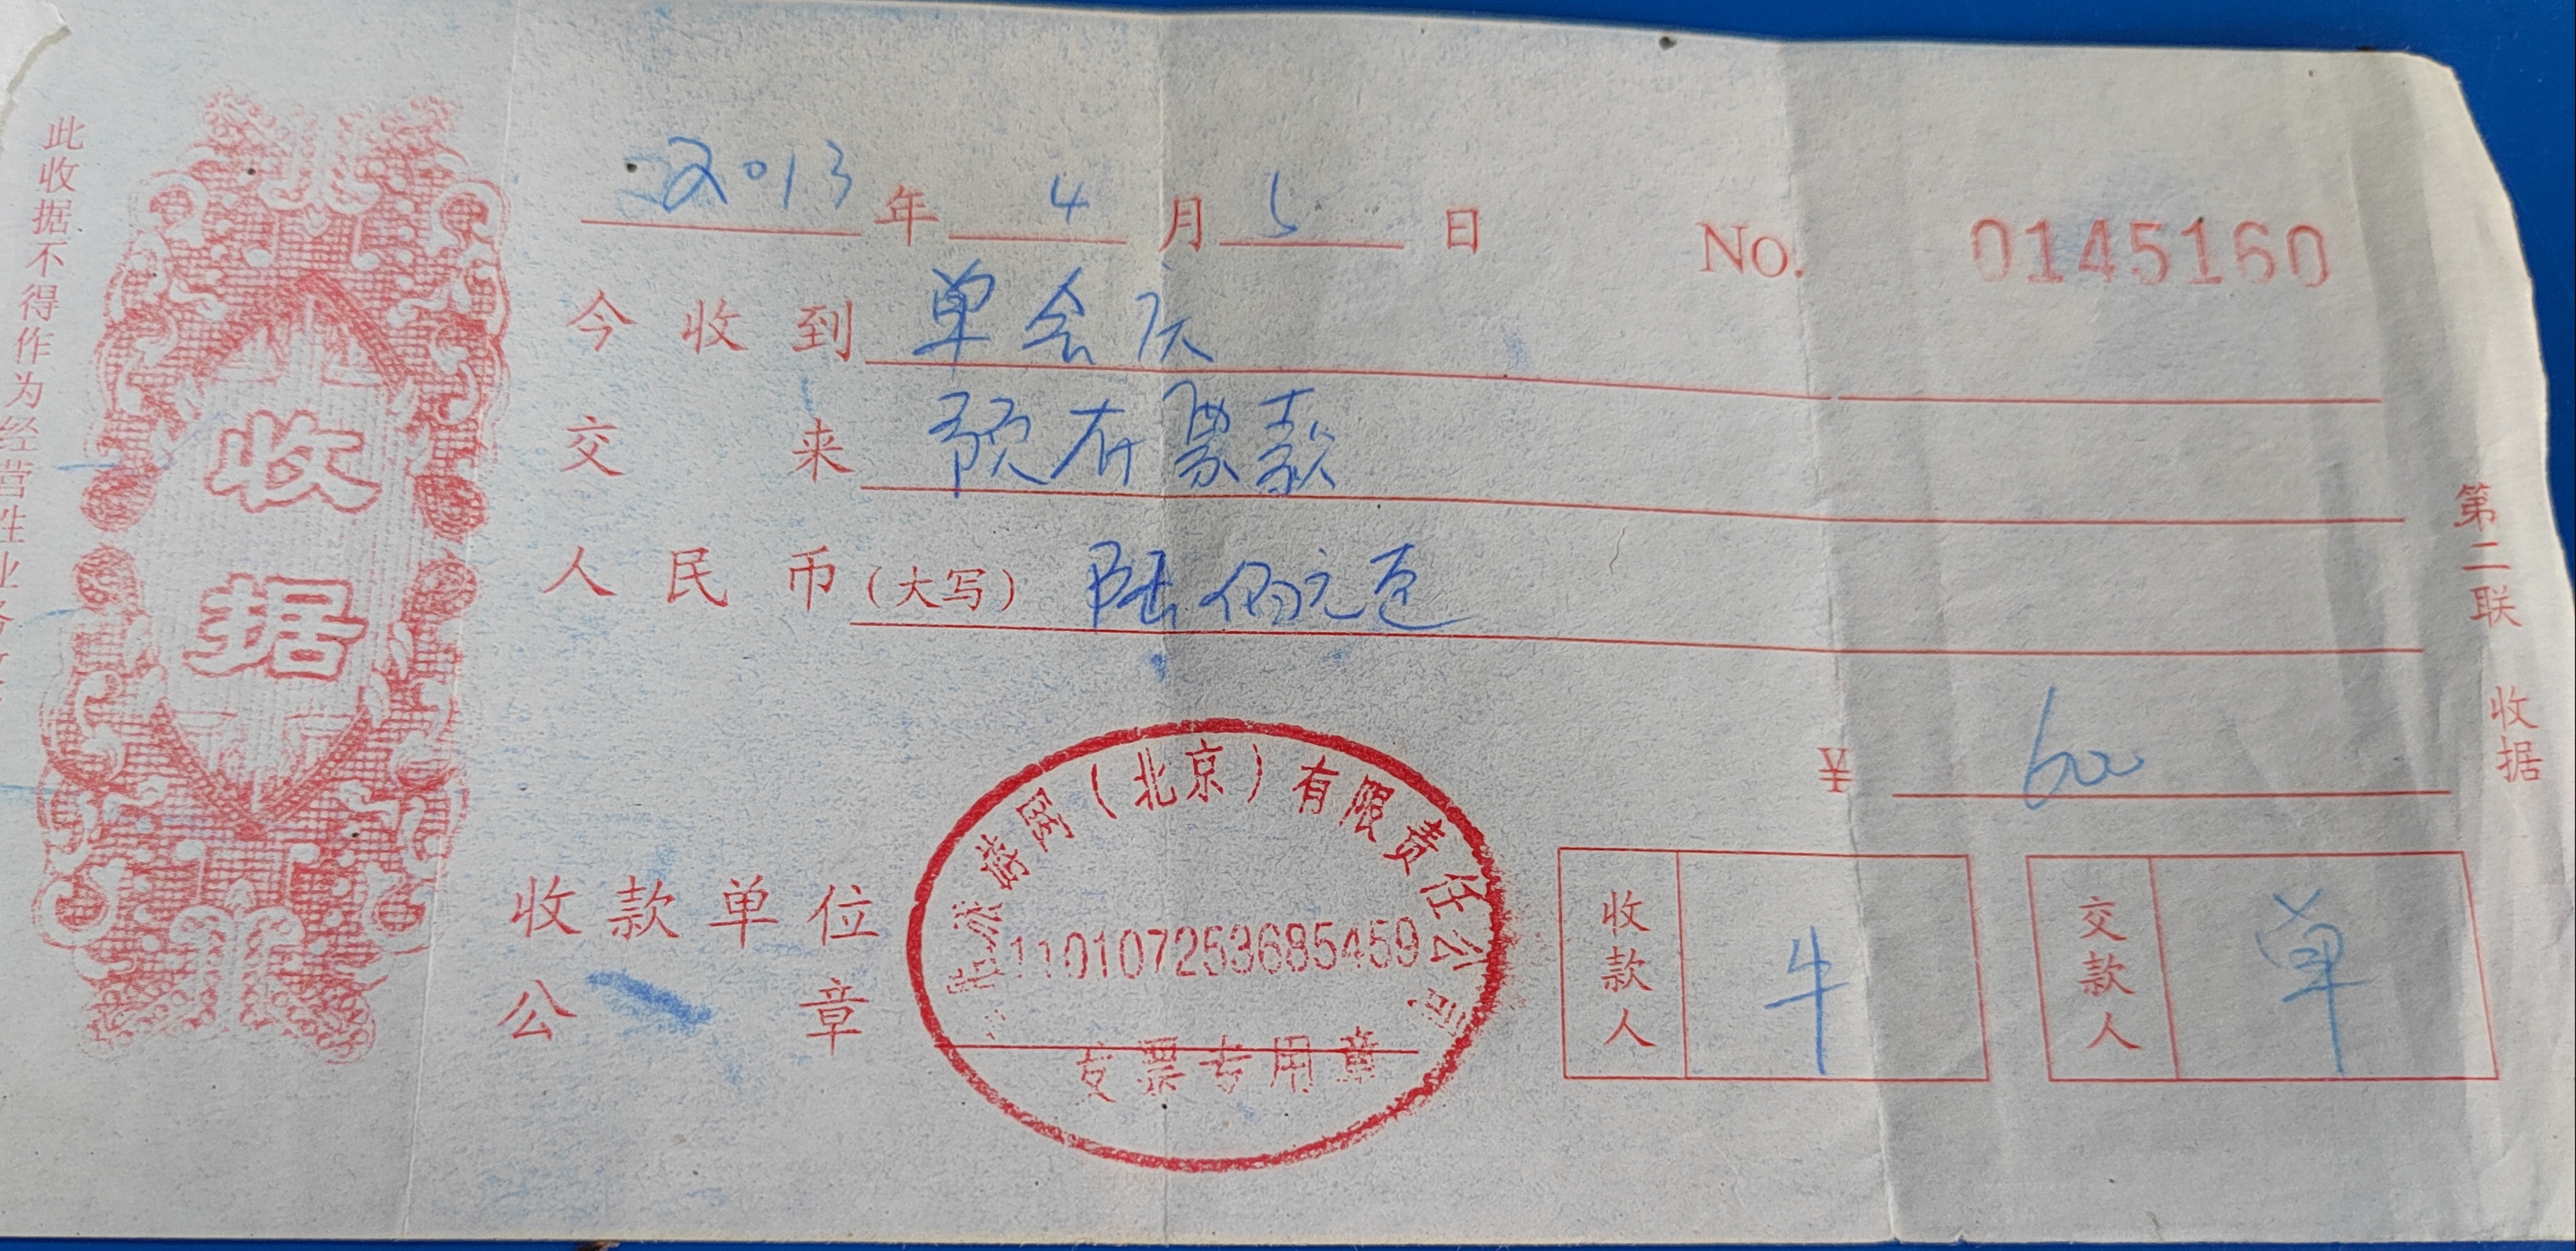 此收据不得作为经营性业务
收据
2013年4月5日 No. 0145160
今收到 单会庆
交来 预存票款
人民币(大写) 陆佰元
¥ 600
收款单位
公章
网(北京)有限责任公司
110107253685459
发票专用章
收款人 牛
交款人 单
第二联 收据